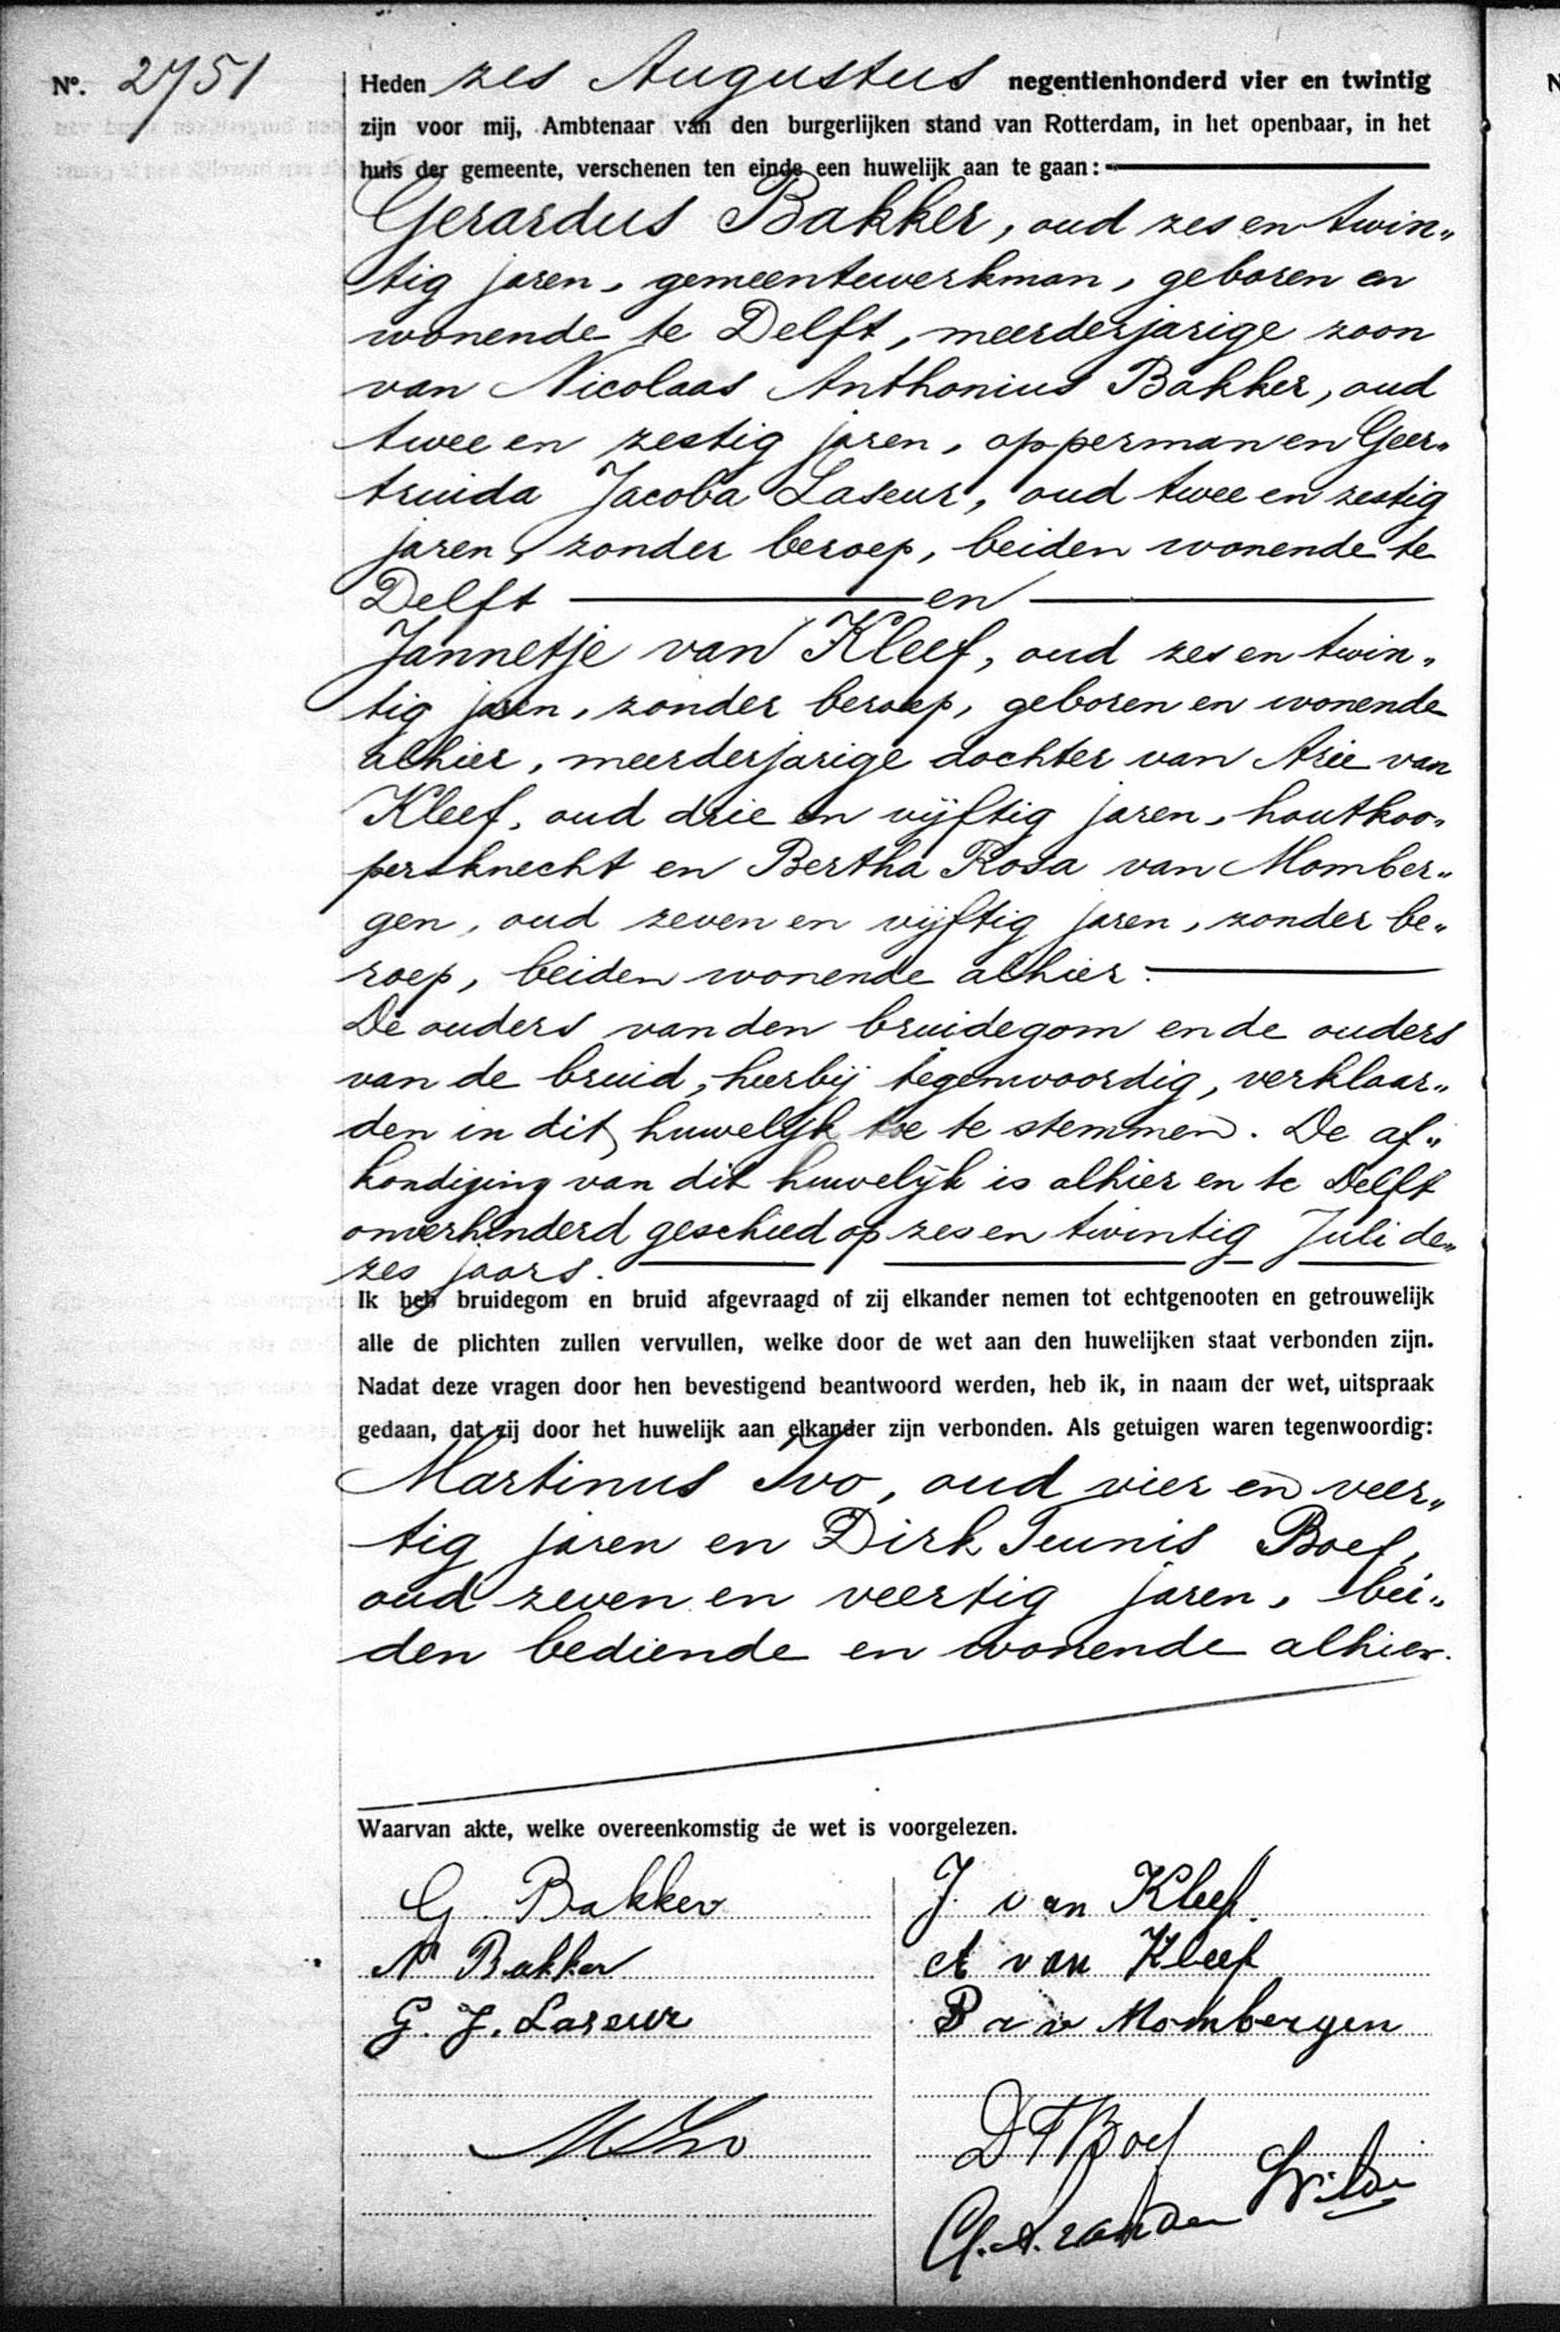 No. 2751
Heden zes Augustus negentienhonderd vier en twintig
zijn voor mij, Ambtenaar van den burgerlijken stand van Rotterdam, in het openbaar, in het
huis der gemeente, verschenen ten einde een huwelijk aan te gaan:
Gerardus Bakker, oud zes en twin„
tig jaren, gemeentewerkman, geboren en
wonende te Delft, meerderjarige zoon
van Nicolaas Anthonius Bakker, oud
twee en zestig jaren, opperman en Geer„
truida Jacoba Laseur, oud twee en zestig
jaren, zonder beroep, beiden wonende te
Delft en
Jannetje van Kleef, oud zes en twin„
tig jaren, zonder beroep, geboren en wonende
alhier, meerderjarige dochter van Arie van
Kleef, oud drie en vijftig jaren, houtkoo„
persknecht en Bertha Rosa van Momber„
gen, oud zeven en vijftig jaren, zonder be„
roep, beiden wonende alhier.
De ouders van den bruidegom en de ouders
van de bruid, hierbij tegenwoordig, verklaar„
den in dit huwelijk toe te stemmen. De af„
kondiging van dit huwelijk is alhier en te Delft
onverhinderd geschied op zes en twintig Juli de„
zes jaars.
Ik heb bruidegom en bruid afgevraagd of zij elkander nemen tot echtgenooten en getrouwelijk
alle de plichten zullen vervullen, welke door de wet aan den huwelijken staat verbonden zijn.
Nadat deze vragen door hen bevestigend beantwoord werden, heb ik, in naam der wet, uitspraak
gedaan, dat zij door het huwelijk aan elkander zijn verbonden. Als getuigen waren tegenwoordig:
Martinus Ivo, oud vier en veer„
tig jaren en Dirk Teunis Boef,
oud zeven en veertig jaren, bei„
den bediende en wonende alhier.
Waarvan akte, welke overeenkomstig de wet is voorgelezen.
G. Bakker J. van Kleef.
N Bakker A van Kleef
G. J. Laseur B van Mombergen
M Ivo D T Boef
van der Wilde